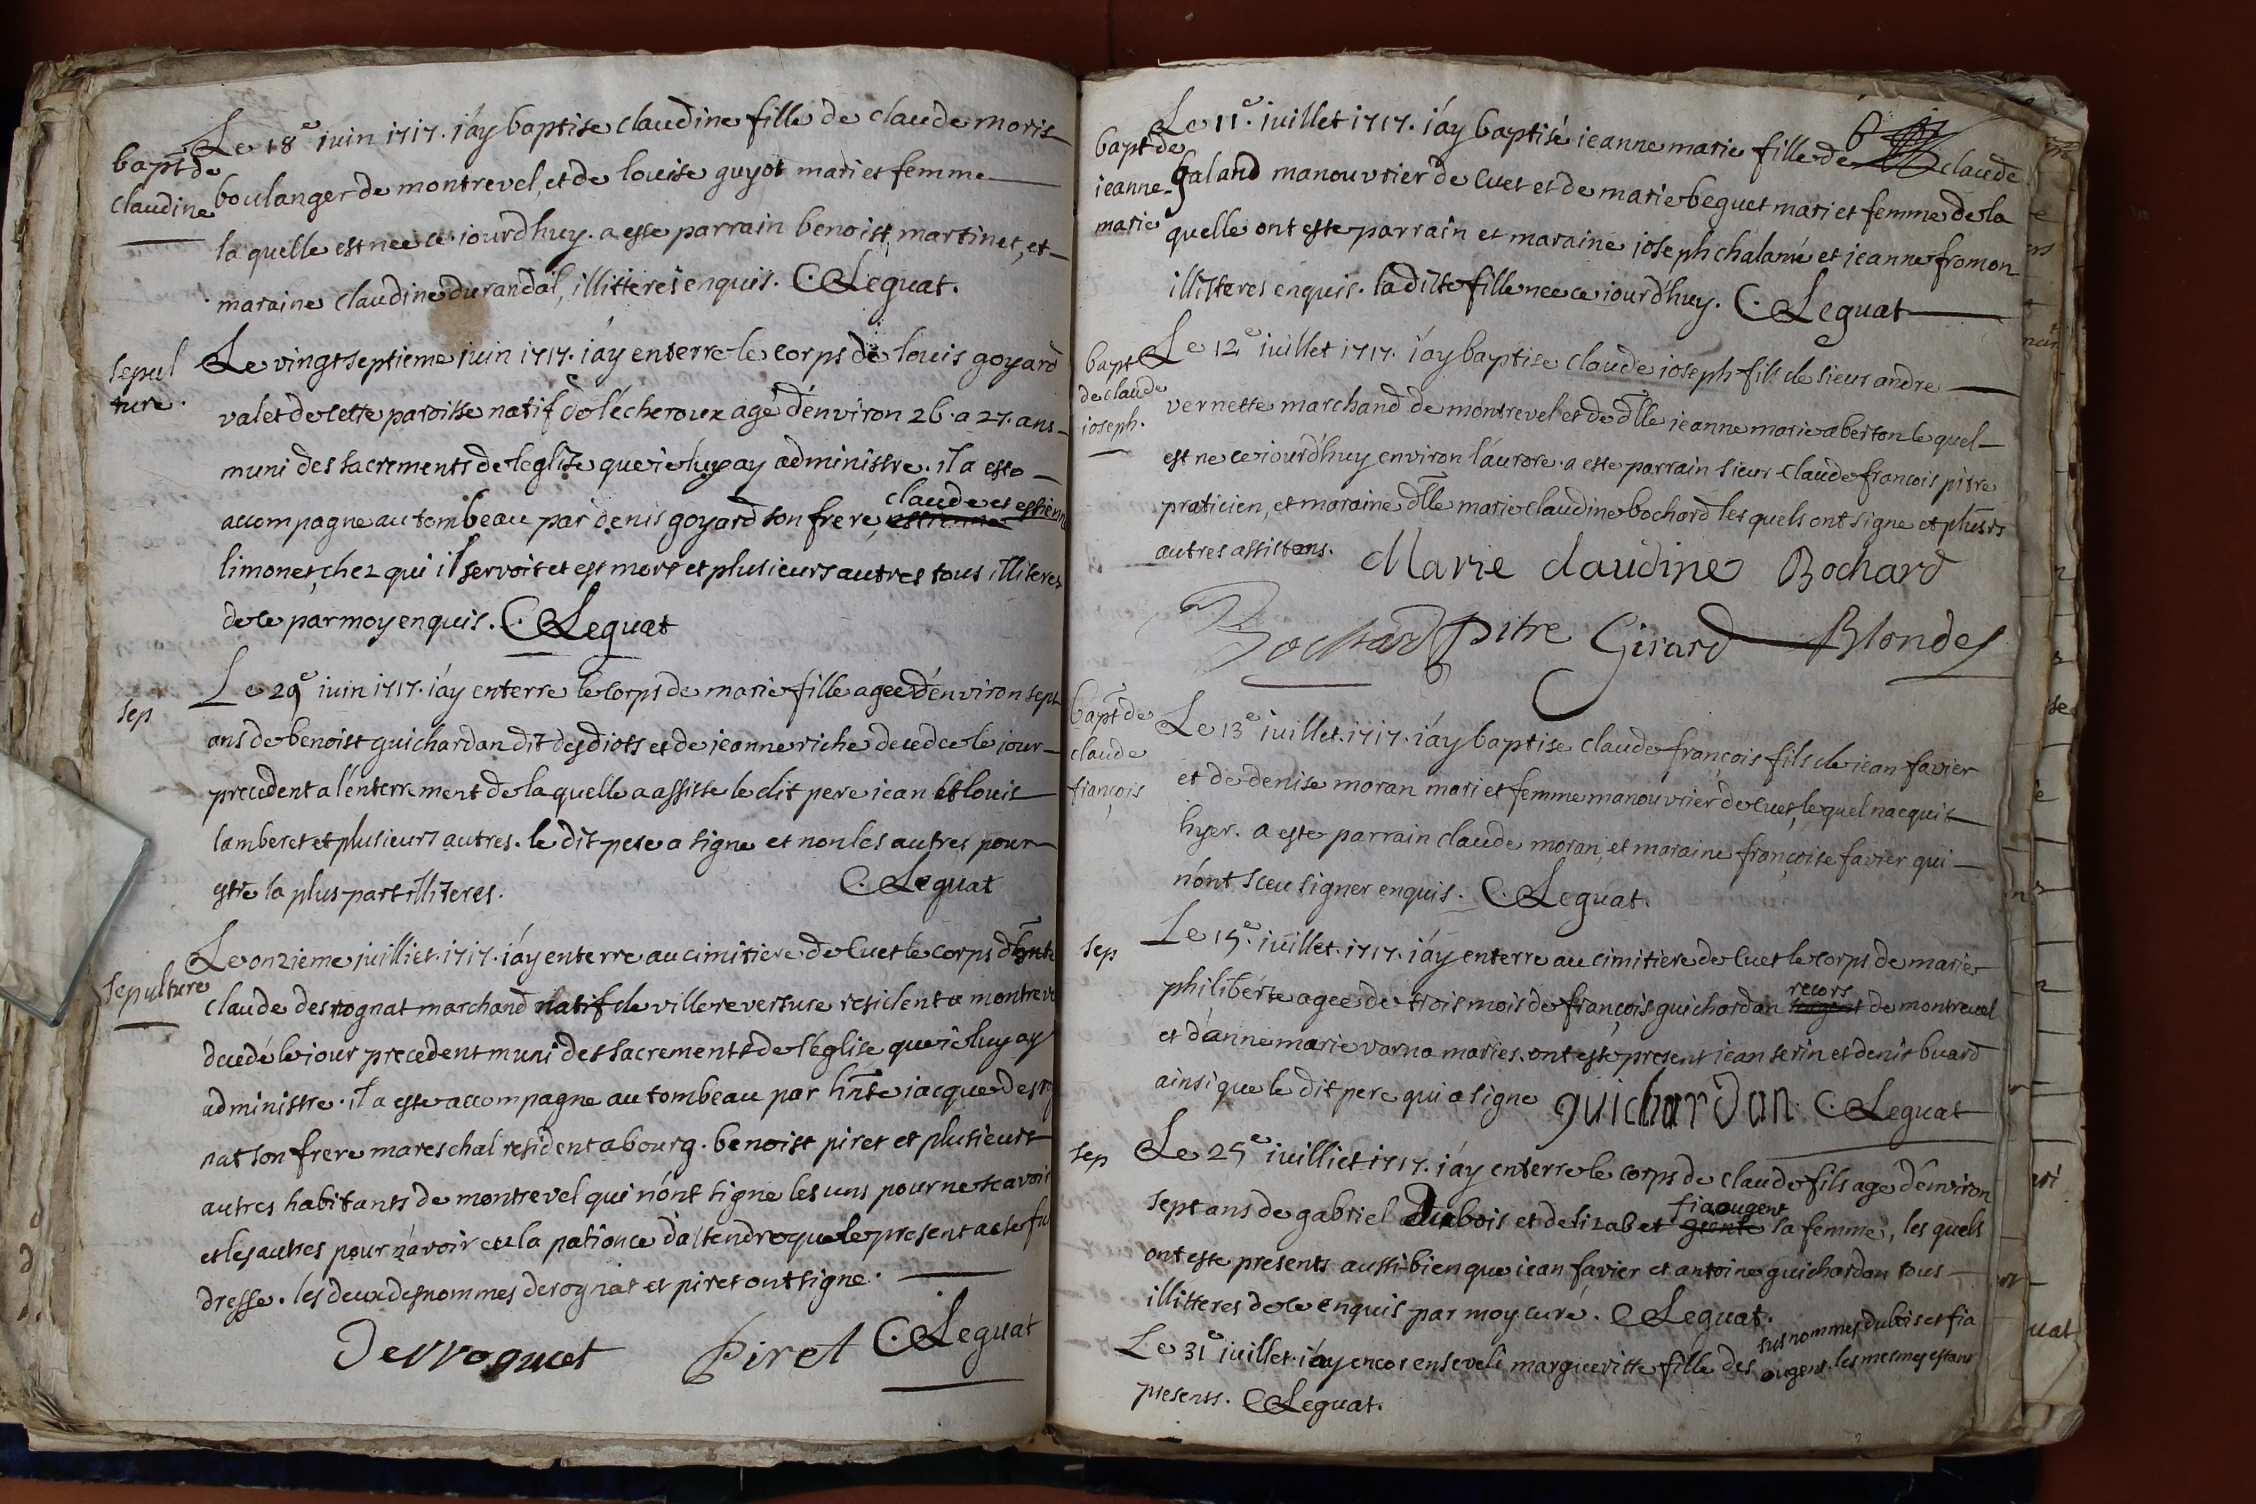 Le 18e juin 1717. i'ay baptise claudine fille de claude moris
bapt de
claudine
boulanger de montrevel, et de louise guyot mari et femme
la quelle est nee ce iourdhuy. a este parrain benoist martinet, et
maraine claudine durandal, illitteres enquis. C. Leguat.
sepul
ture.
Le vingt septieme juin 1717. i'ay enterre le corps de louis goyard
valet de cette paroisse natif de lécheroux agé d'environ 26. a 27. ans
muni des sacrements de leglise que ie luy ay administre. il a este
accompagne au tombeau par denis goyard son frere, claude et estienne
limonet, chez qui il servoit et est mort et plusieurs autres tous illiteres
de ce par moy enquis. C. Leguat
sep
Le 29e juin 1717. i'ay enterre le corps de marie fille agee d'environ sept
ans de benoist guichardan dit des diots et de jeanne riche decedee le jour
precedent a l'enterrement de la quelle a assiste le dit pere jean et louis
lamberet et plusieurs autres. le dit pere a signe et non les autres pour
estre la plus part illiteres. C. Leguat
sepulture
Le onzieme juilliet. 1717. i'ay enterre au cimitiere de Cuet le corps d'hnte
claude desrognat marchand natif de villereversure resident a montrevel
decedé le jour precedent muni des sacrements de l'église que ie luy ay
administre. il a este accompagne au tombeau par hnte jacque desrog
nat son frere mareschal resident a bourg. benoist piret et plusieurs
autres habitants de montrevel qui n'ont signe les uns pour ne scavoir
et les autres pour n'avoir eu la patience d'attendre que le present acte fu
dresse. les deux desnommes derognat et piret ont signe.
Desroguat Piret C. Leguat
Le 11e. iuillet 1717. i'ay baptisé ieanne marie fille de claude
bapt de
ieanne-
marie
galand manouvrier de Cuet et de marie beguet mari et femme de la
quelle ont este parrain et maraine ioseph chalamé et ieanne fromon
illitteres enquis. la ditte fille nee ce iourdhuy. C. Leguat
bapt
de claude
ioseph.
Le 12e iuillet 1717. i'ay baptise claude ioseph fils de sieur andre
vernette marchand de montrevel et de dlle ieanne marie aberton le quel
est ne ce iourd'huy environ l'aurore. a este parrain sieur claude francois pitre
praticien, et maraine dlle marie claudine bochard les quels ont signe et plusrs
autres assistans. Marie Claudine Bochard
Bochard pitre Girard Blondel
bapt de
claude
françois
Le 13e iuillet. 1717. i'ay baptise claude françois fils de iean favier
et de denise moran mari et femme manouvrier de Cuet, lequel nacquit
hyer. a este parrain claude moran, et maraine françoise favier qui
n'ont sceu signer enquis. C. Leguat.
sep
Le 15e. iuillet. 1717. i'ay enterre au cimitiere de Cuet le corps de marie
philiberte agee de trois mois de françois guichardan recors de montrevel
et d'anne marie varna maries. ont este present iean serin et denis buard
ainsi que le dit pere qui a signe guichardan. C. Leguat
sep
Le 25e iuilliet 1717. i'ay enterre le corps de claude fils age d'environ
sept ans de gabriel dubois et de lizabet fiaougent sa femme, les quels
ont este presents aussi bien que iean favier et antoine guichardan tous
illitteres de ce enquis par moy curé. C. Leguat.
Le 31e iuillet. i'ay encor enseveli margueritte fille des susnommes dubois et fia
ougent. les mesmes estant
presents. C. Leguat.